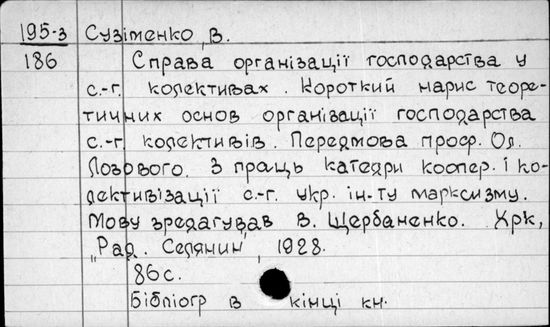 195-з Сузіменко, В.
186 Справа організації господарства у
с.-г. колективах. Короткий нарис теоре-
тичних основ організації господарства
с.-г. колективів. Передмова проф. Ол.
Лозового. З праць катедри коопер. і ко-
лективізації с.-г. укр. ін-ту марксизму.
Мову зредагував В. Щербаненко. Хрк,
„Рад. Селянин", 1928.
86 с.
Бібліогр в кінці кн.